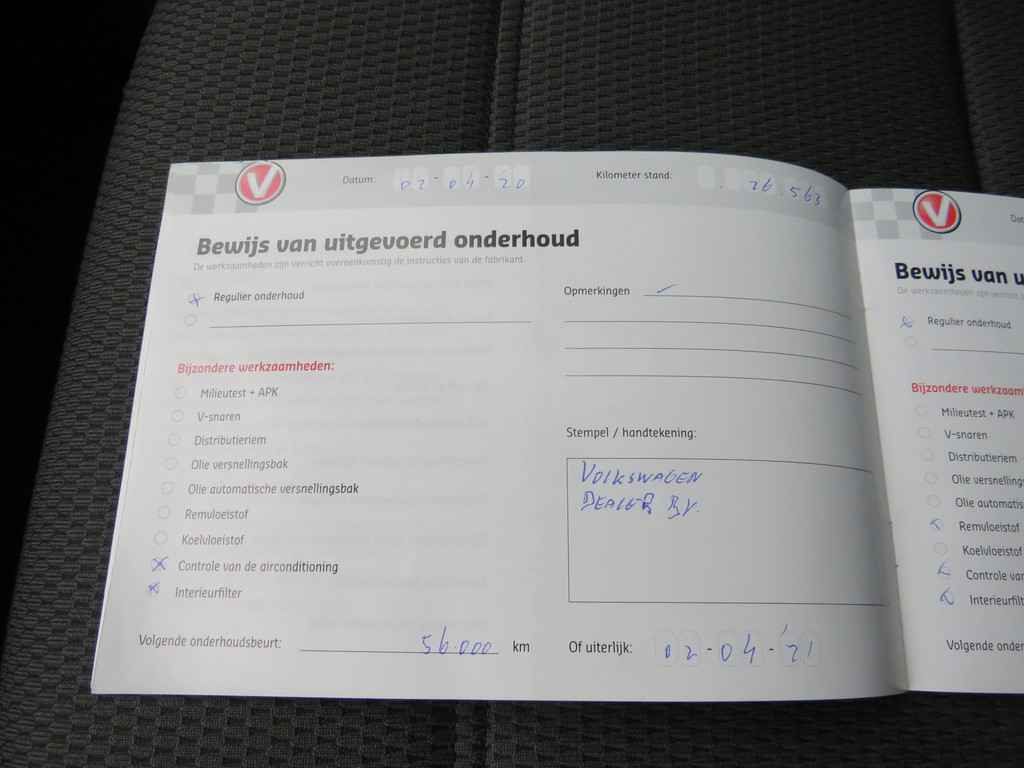 V
Datum: 02-04-20
Kilometer stand: 26.563
Bewijs van uitgevoerd onderhoud
De werkzaamheden zijn verricht overeenkomstig de instructies van de fabrikant.
Regulier onderhoud
Opmerkingen
Bijzondere werkzaamheden:
Milieutest + APK
V-snaren
Distributieriem
Olie versnellingsbak
Olie automatische versnellingsbak
Remvloeistof
Koelvloeistof
Controle van de airconditioning
Interieurfilter
Stempel / handtekening:
VOLKSWAGEN
DEALER B.V.
Volgende onderhoudsbeurt: 56.000 km
Of uiterlijk: 02-04-'21
V
Dat
Bewijs van u
De werkzaamheden zijn verricht
Regulier onderhoud
Bijzondere werkzaam
Milieutest + APK
V-snaren
Distributieriem
Olie versnelling
Olie automatis
Remvloeistof
Koelvloeistof
Controle van
Interieurfilt
Volgende onder